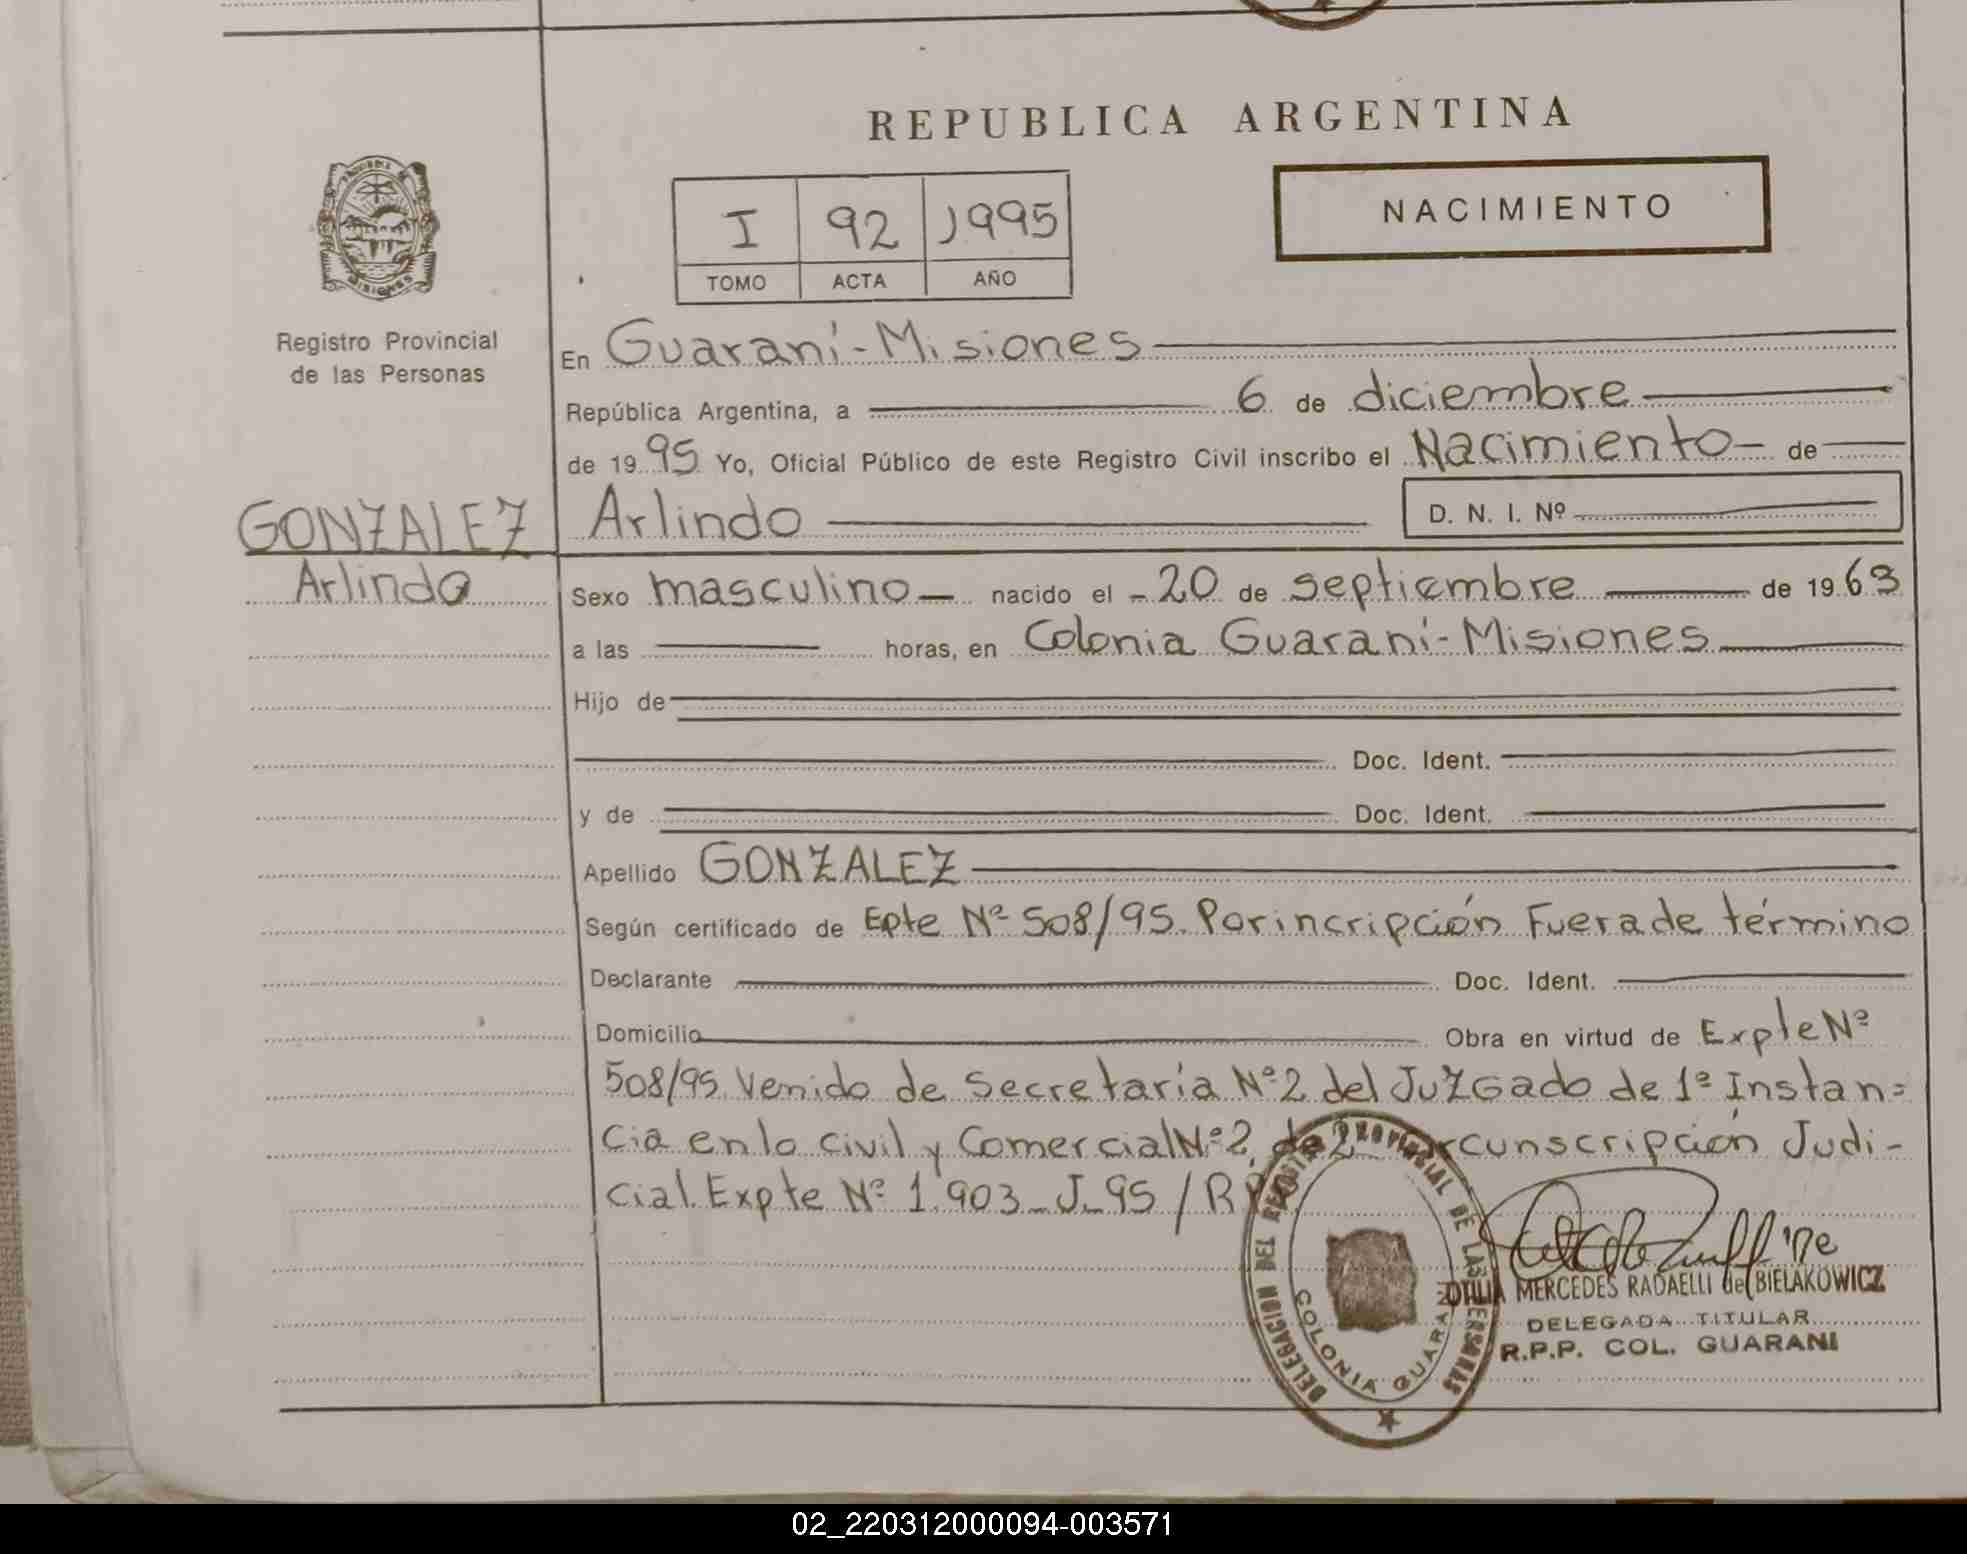 REPUBLICA ARGENTINA
NACIMIENTO
I 92 1995
TOMO ACTA AÑO
PROVINCIA DE
MISIONES
Registro Provincial
de las Personas
En Guaraní-Misiones
República Argentina, a 6 de diciembre
de 1995 Yo, Oficial Público de este Registro Civil inscribo el Nacimiento de
GONZALEZ Arlindo D. N. I. Nº
Arlindo Sexo masculino nacido el 20 de septiembre de 1963
a las horas, en Colonia Guaraní-Misiones
Hijo de
Doc. Ident.
y de Doc. Ident.
Apellido GONZALEZ
Según certificado de Epte Nº 508/95. Por incripción Fuera de término
Declarante Doc. Ident.
Domicilio Obra en virtud de Expte Nº
508/95. Venido de Secretaría Nº 2 del Juzgado de 1º Instan=
cia en lo civil y Comercial Nº 2, de 2 circunscripción Judi-
cial. Expte Nº 1.903-J-95/R
DELEGACION DEL REGISTRO PROVINCIAL DE LAS PERSONAS
COLONIA GUARANI
OTILIA MERCEDES RADAELLI de BIELAKOWICZ
DELEGADA TITULAR
R.P.P. COL. GUARANI
02_220312000094-003571